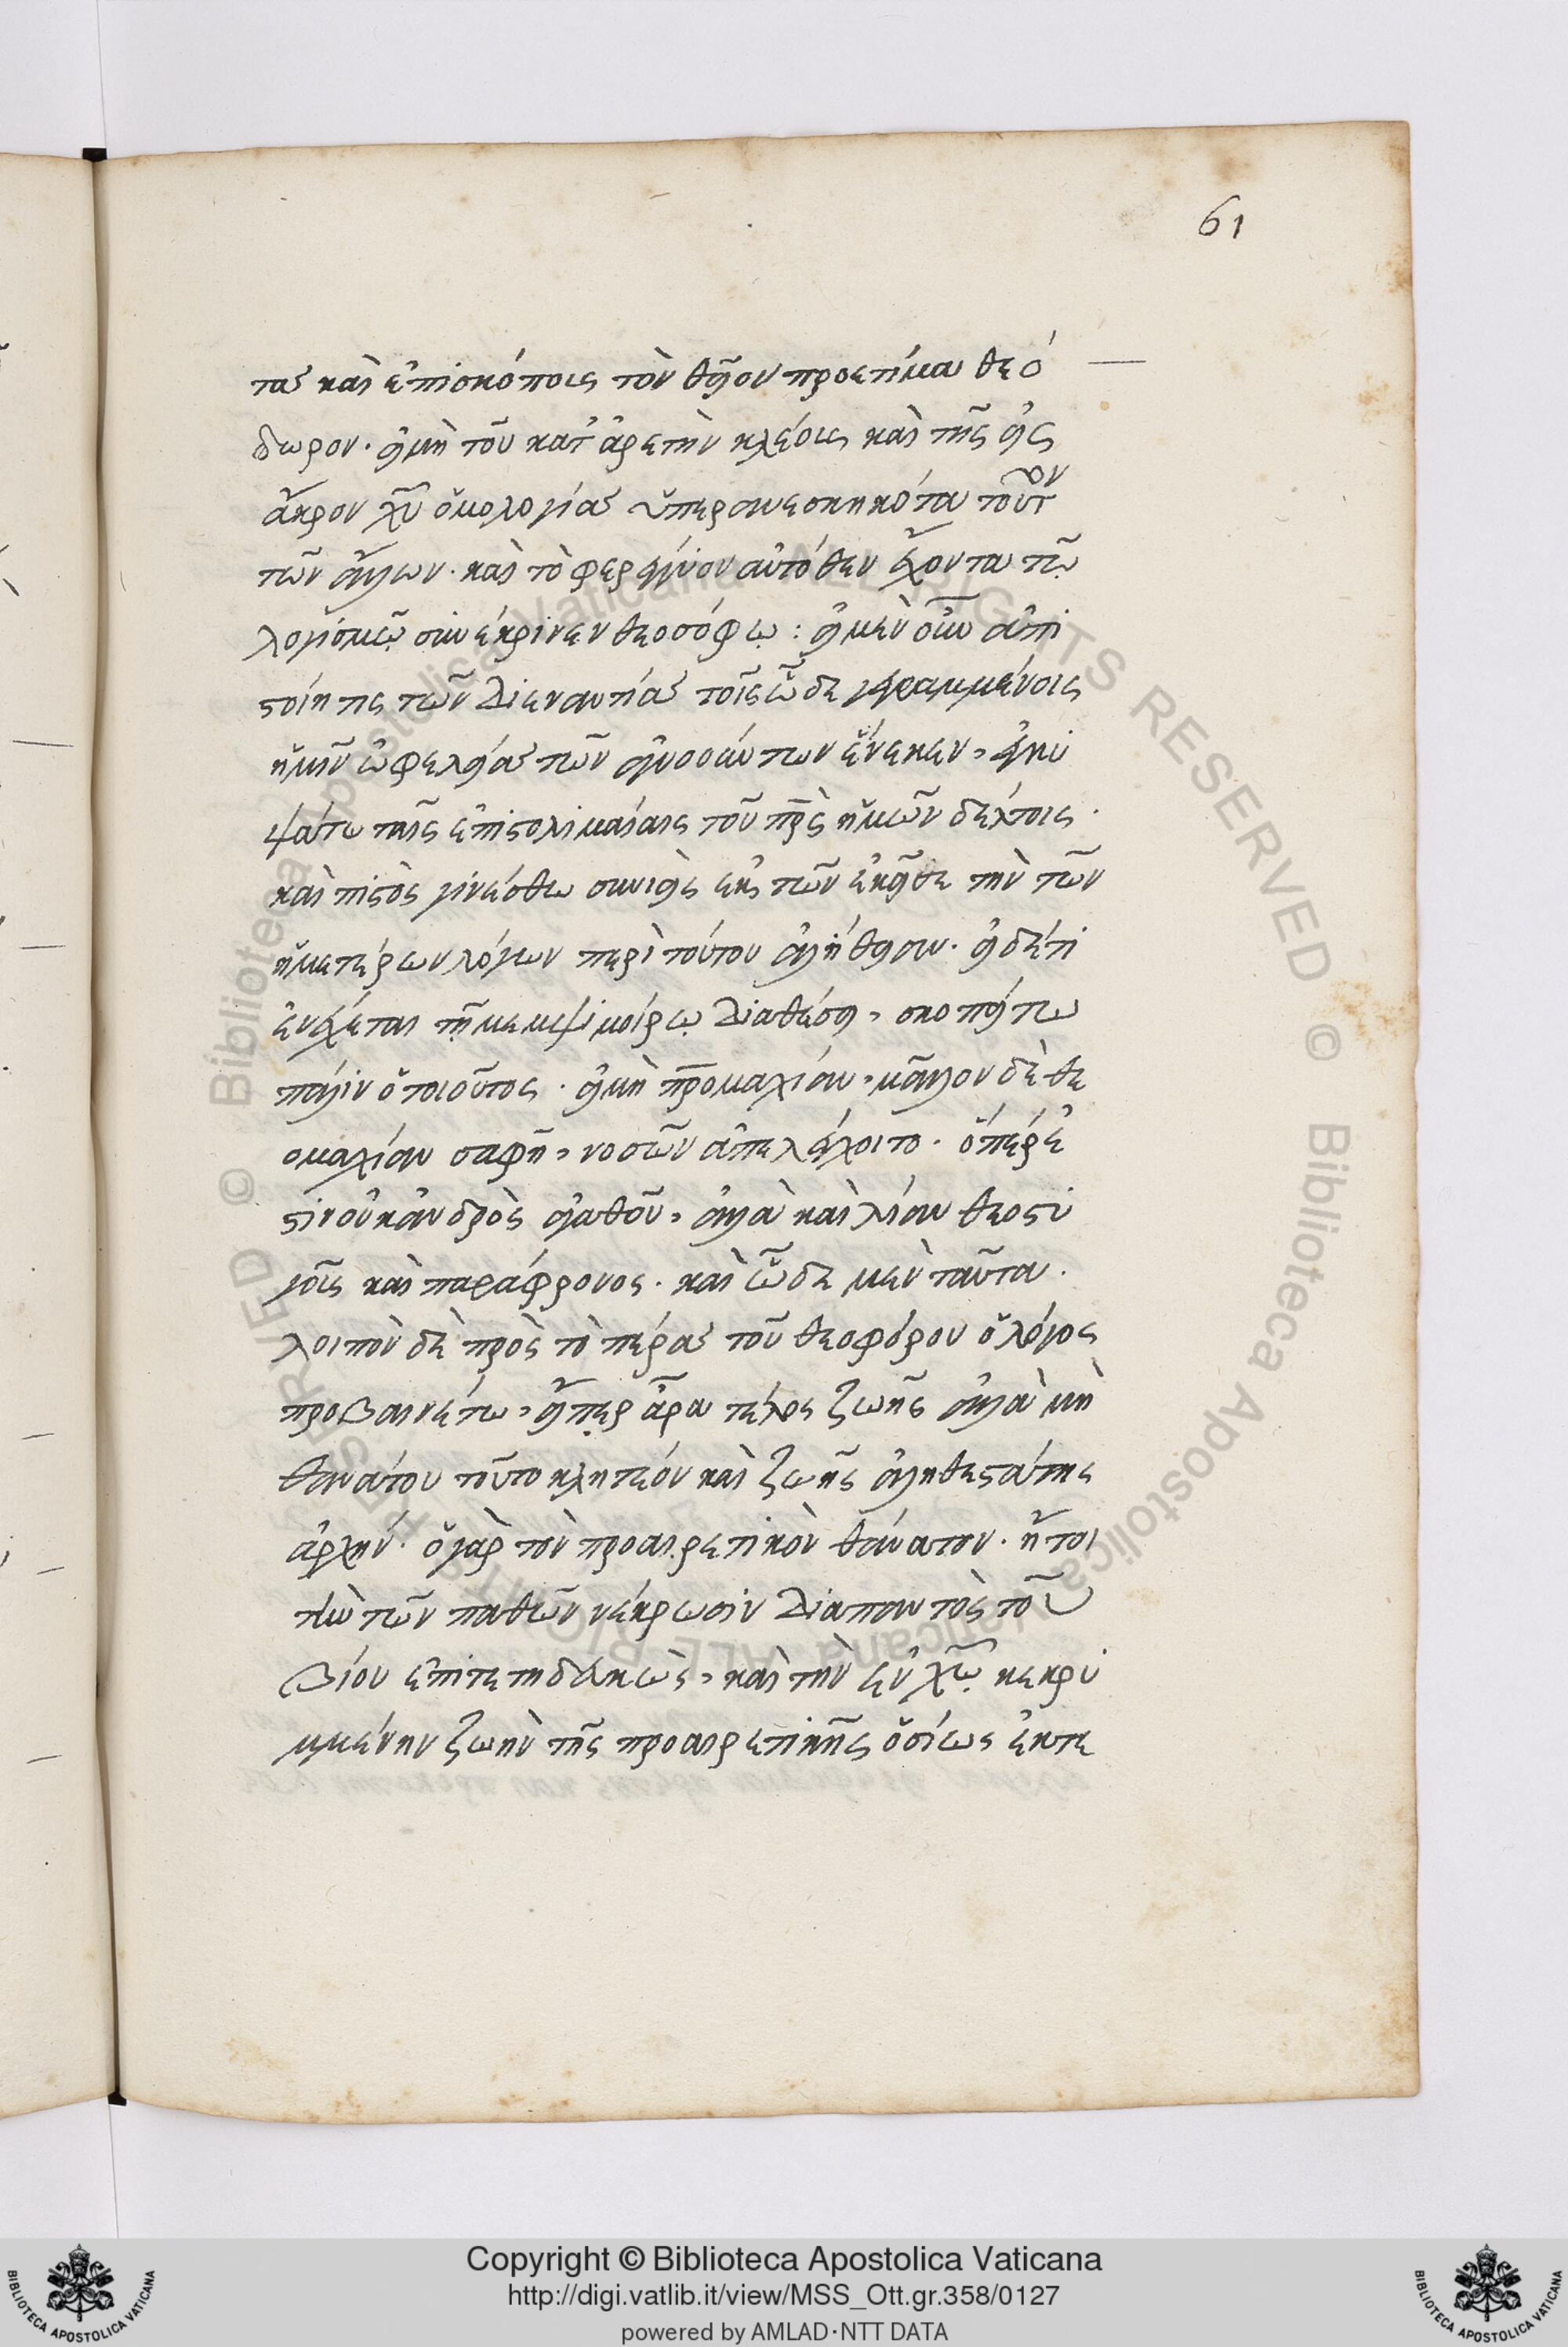 61
τας καὶ ἐπισκόποις τὸν θεῖον προετίμα θεό
δωρον. εἰ μὴ τοῦ κατ' ἀρετὴν κλέους καὶ τῆς εἰς
ἄκρον χυ ὁμολογίας ὑπερανεστηκότα τοῦτον
τῶν ἄλλων. καὶ τὸ φερεγγύον αὐτόθεν ἔχοντα τῷ
λογισμῷ συνέκρινεν θεοσόφῳ: εἰ μὲν οὖν ἀπι
στοίη τις τῶν δι' ἐναντίας τοῖς ὧδε γεγραμμένοις
ἡμῖν ὠφελείας τῶν ἀγνοούντων ἕνεκεν, ἐγκυ
ψάτω ταῖς ἐπιστολιμαίαις τοῦ πρς ἡμῶν δέλτοις.
καὶ πιστὸς γινέσθω συνιεὶς ἐκ τῶν ἐκεῖσε τὴν τῶν
ἡμετέρων λόγων περὶ τούτου ἀλήθειαν. εἰ δέ τι
ἐνέχεται τῇ μεμψιμοίρῳ διαθέσει, σκοπείτω
πάλιν ὁ τοιοῦτος. εἰ μὴ προμαχίαν, μᾶλλον δὲ θε
ομαχίαν σαφῆ, νοσῶν ἀπελέγχοιτο. ὅπέρ ἐ
στιν οὐκ ἀνδρὸς ἀγαθοῦ, ἀλλὰ καὶ λίαν θεοστυ
γοῦς καὶ παράφρονος. καὶ ὧδε μὲν ταῦτα.
λοιπὸν δὲ πρὸς τὸ πέρας τοῦ θεοφόρου ὁ λόγος
προβαινέτω, εἴπερ ἄρα τέλος ζωῆς ἀλλὰ μὴ
θανάτου τοῦτο κλητέον καὶ ζωῆς ἀληθεστάτης
ἀρχήν. ὁ γὰρ τὸν προαιρετικὸν θάνατον. ἤτοι
τὴν τῶν παθῶν νέκρωσιν διαπαντὸς τοῦ
βίου ἐπιτετηδευκὼς, καὶ τὴν ἐν χω κεκρυ
μμένην ζωὴν τῆς προαιρετικῆς ὁσίως ἐκτε
Copyright © Biblioteca Apostolica Vaticana
http://digi.vatlib.it/view/MSS_Ott.gr.358/0127
powered by AMLAD·NTT DATA